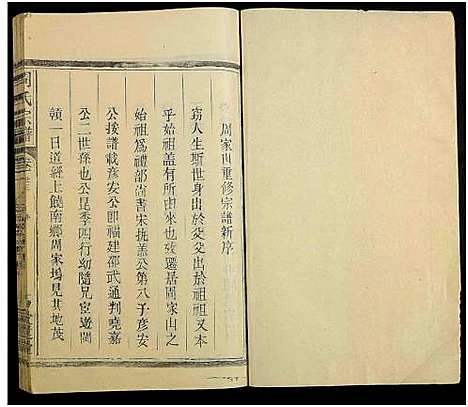 周家山重修宗譜新序
窃人生斯世身出於父父出於祖祖又本
乎始祖盖有所由來也攷遷居周家山之
始祖爲禮部尚書宋執盖公第八子彦安
公按譜載彦安公卽福建邵武通判曉嘉
公二世孫也公昆季四行幼隨兄宦遊閩
贛一日道經上饒南鄉周家塢見其地茂
周氏宗譜